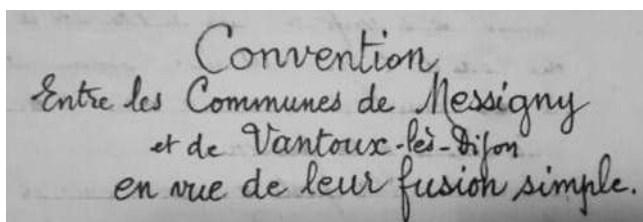 Convention
Entre les Communes de Messigny
et de Vantoux-lès-Dijon
en vue de leur fusion simple.